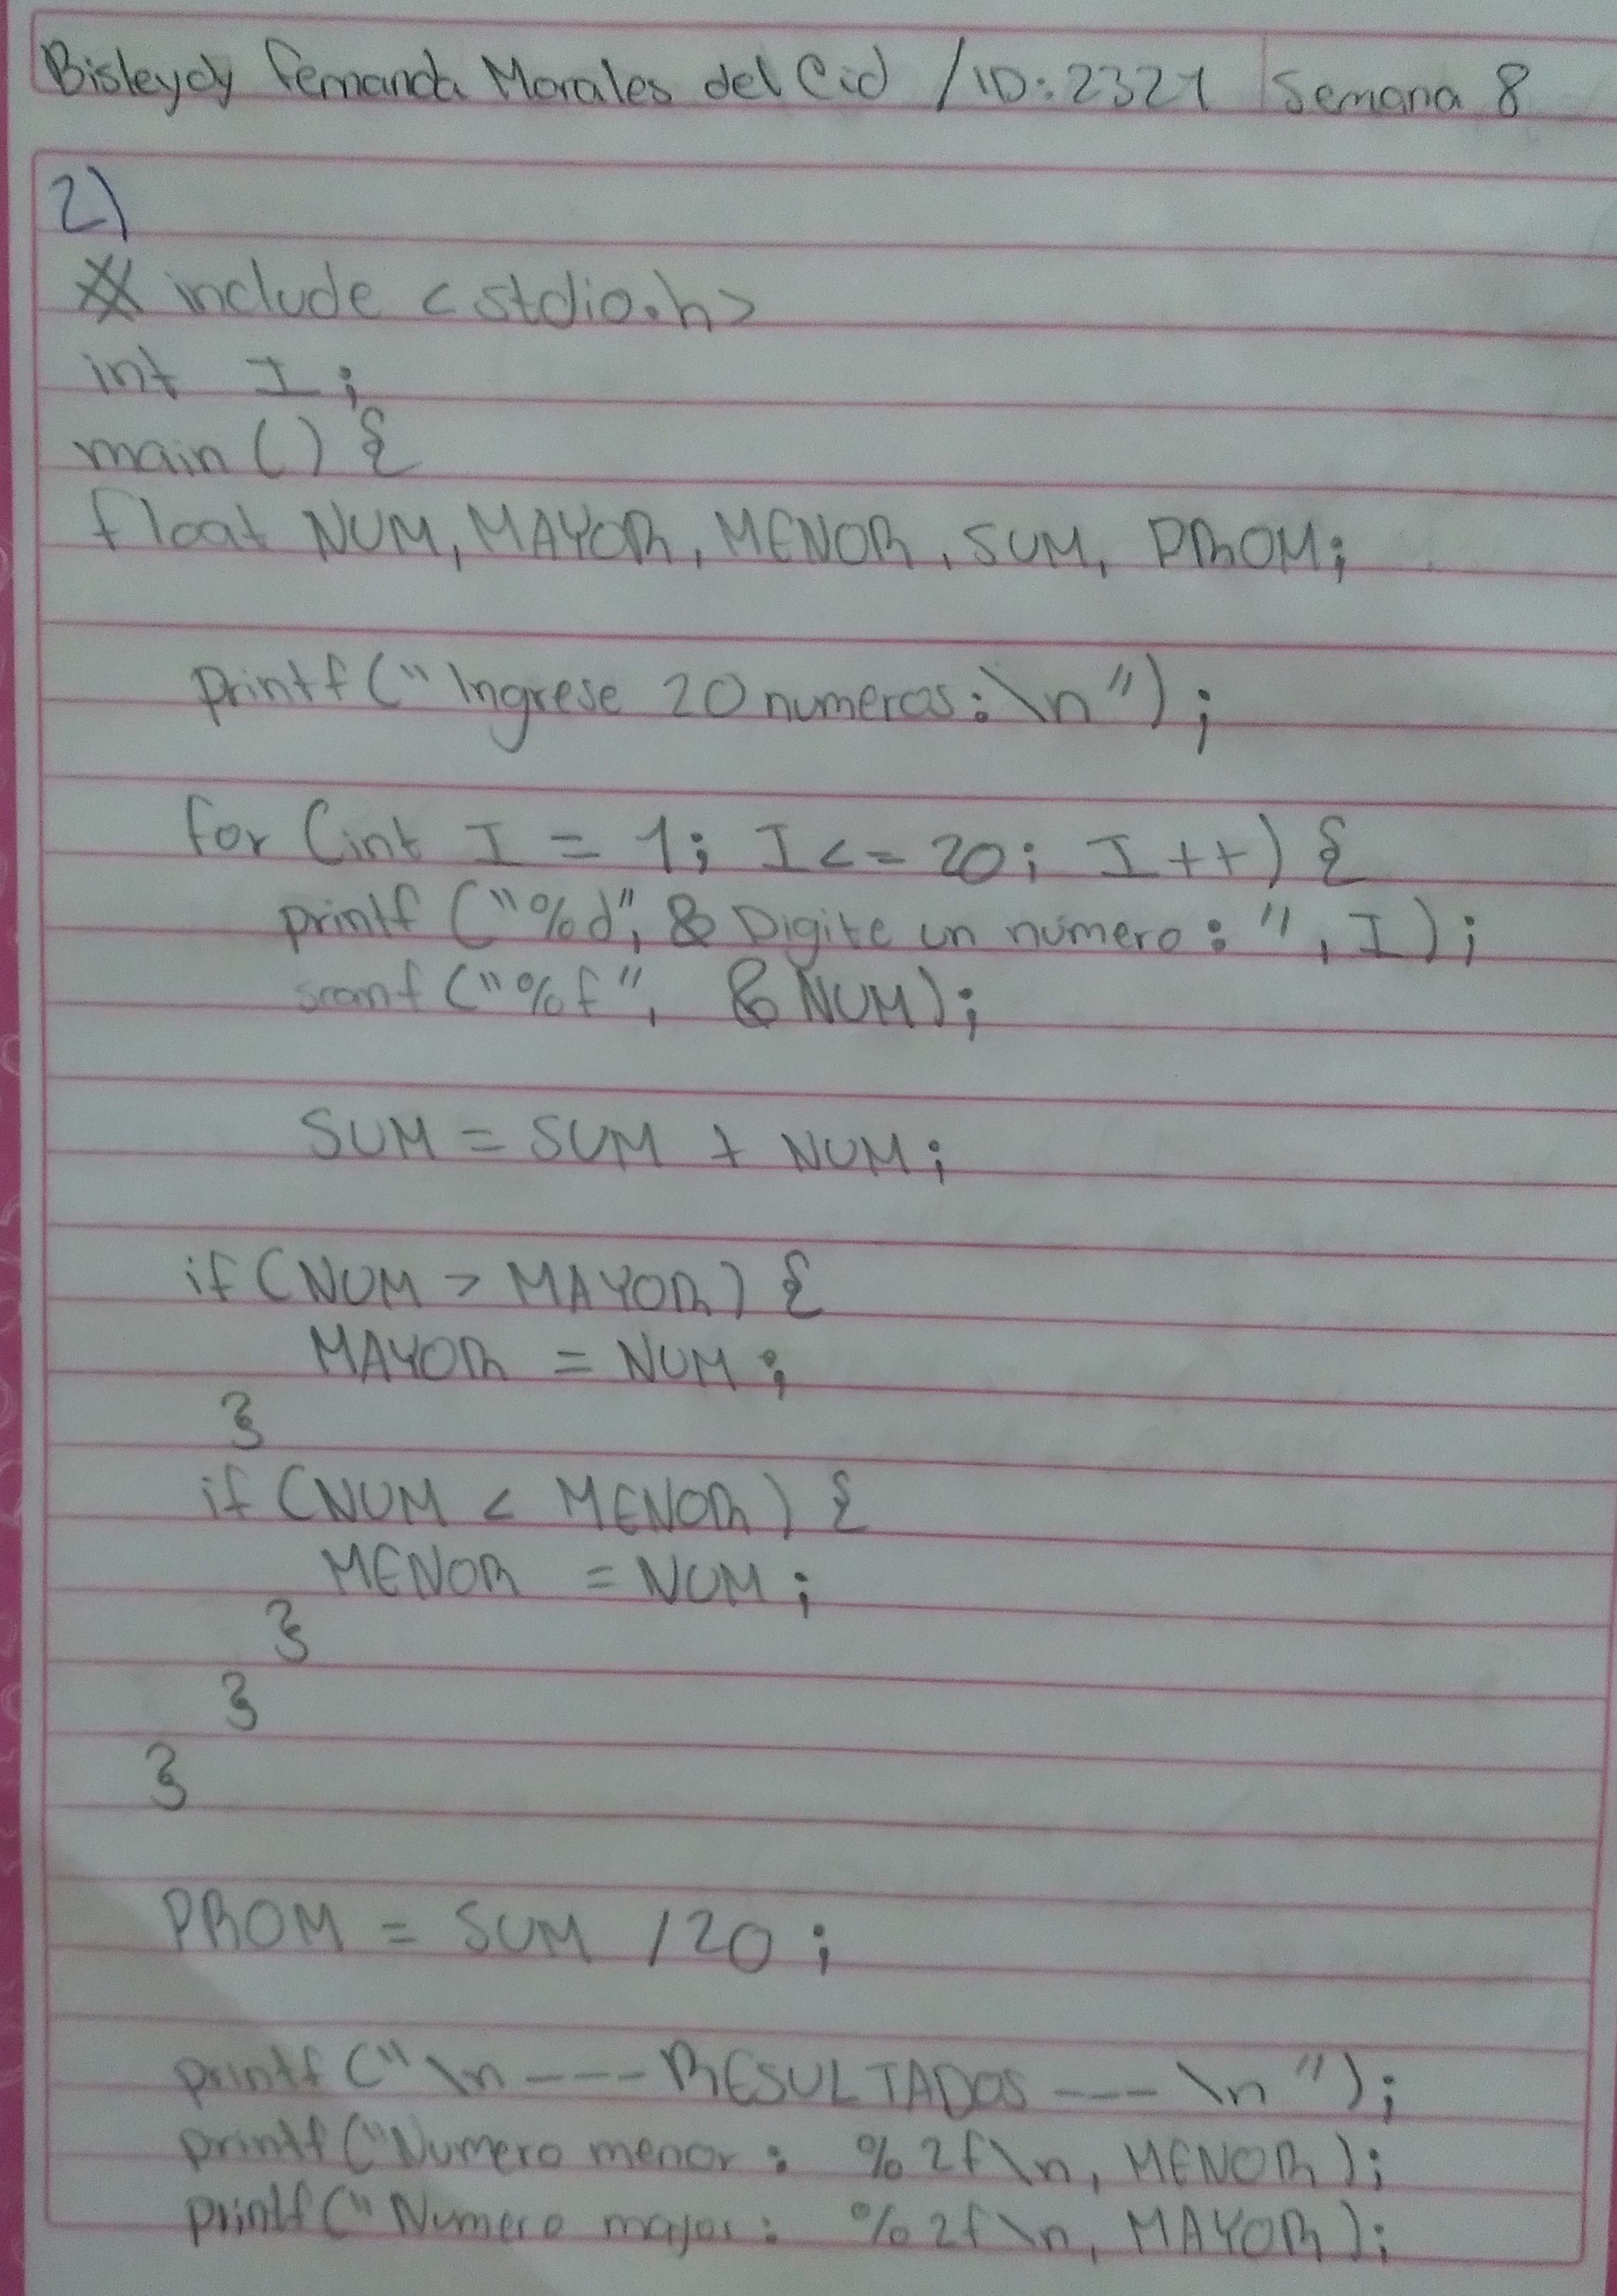 Bisleydy Fernanda Morales del Cid / ID: 2321 Semana 8
2)
# include <stdio.h>
int I;
main () {
float NUM, MAYOR, MENOR, SUM, PROM;
printf (" Ingrese 20 numeros: \n ");
for (int I = 1; I <= 20; I ++) {
printf ("%d", & Digite un numero: ", I);
scanf ("%f", & NUM);
SUM = SUM + NUM;
if (NUM > MAYOR) {
MAYOR = NUM;
}
if (NUM < MENOR) {
MENOR = NUM;
}
}
}
PROM = SUM /20;
printf (" \n ---- RESULTADOS ---- \n ");
printf ("Numero menor: %2f\n, MENOR);
printf (" Numero mayor: %2f\n, MAYOR);